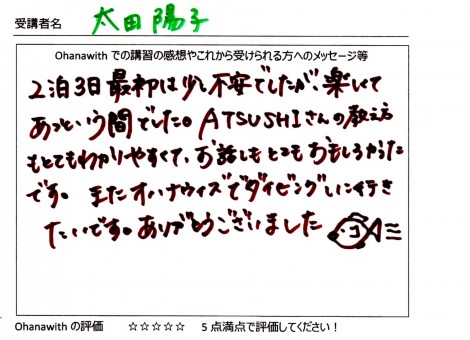 受講者名 太田 陽子
Ohanawith での講習の感想やこれから受けられる方へのメッセージ等
2泊3日 最初は少し不安でしたが、楽しくて
あっという間でした。ATSUSHIさんの教え方
もとてもわかりやすくて、お話しもとてもおもしろかった
です。またオハナウィズでダイビングしに行き
たいです。ありがとうございました
Ohanawith の評価 ☆☆☆☆☆ 5 点満点で評価してください！